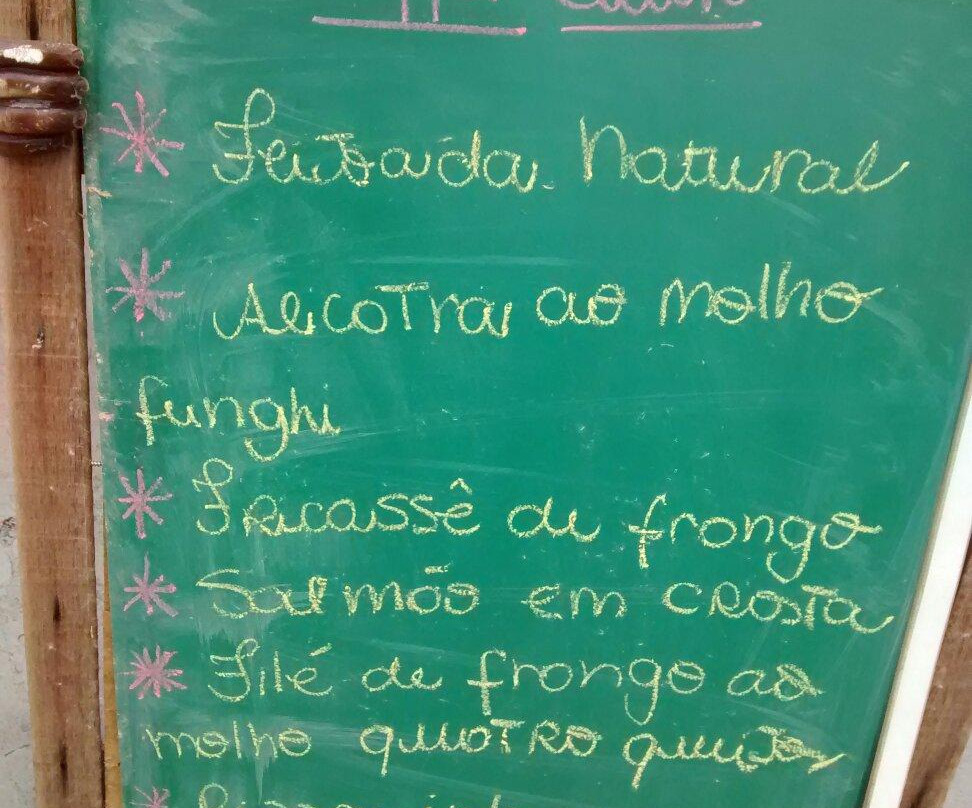 * Feijoada Natural
* Alcatra ao molho
funghi
* Fricassê de frango
* Salmão em crosta
* Filé de frango ao
molho quatro queijos
*